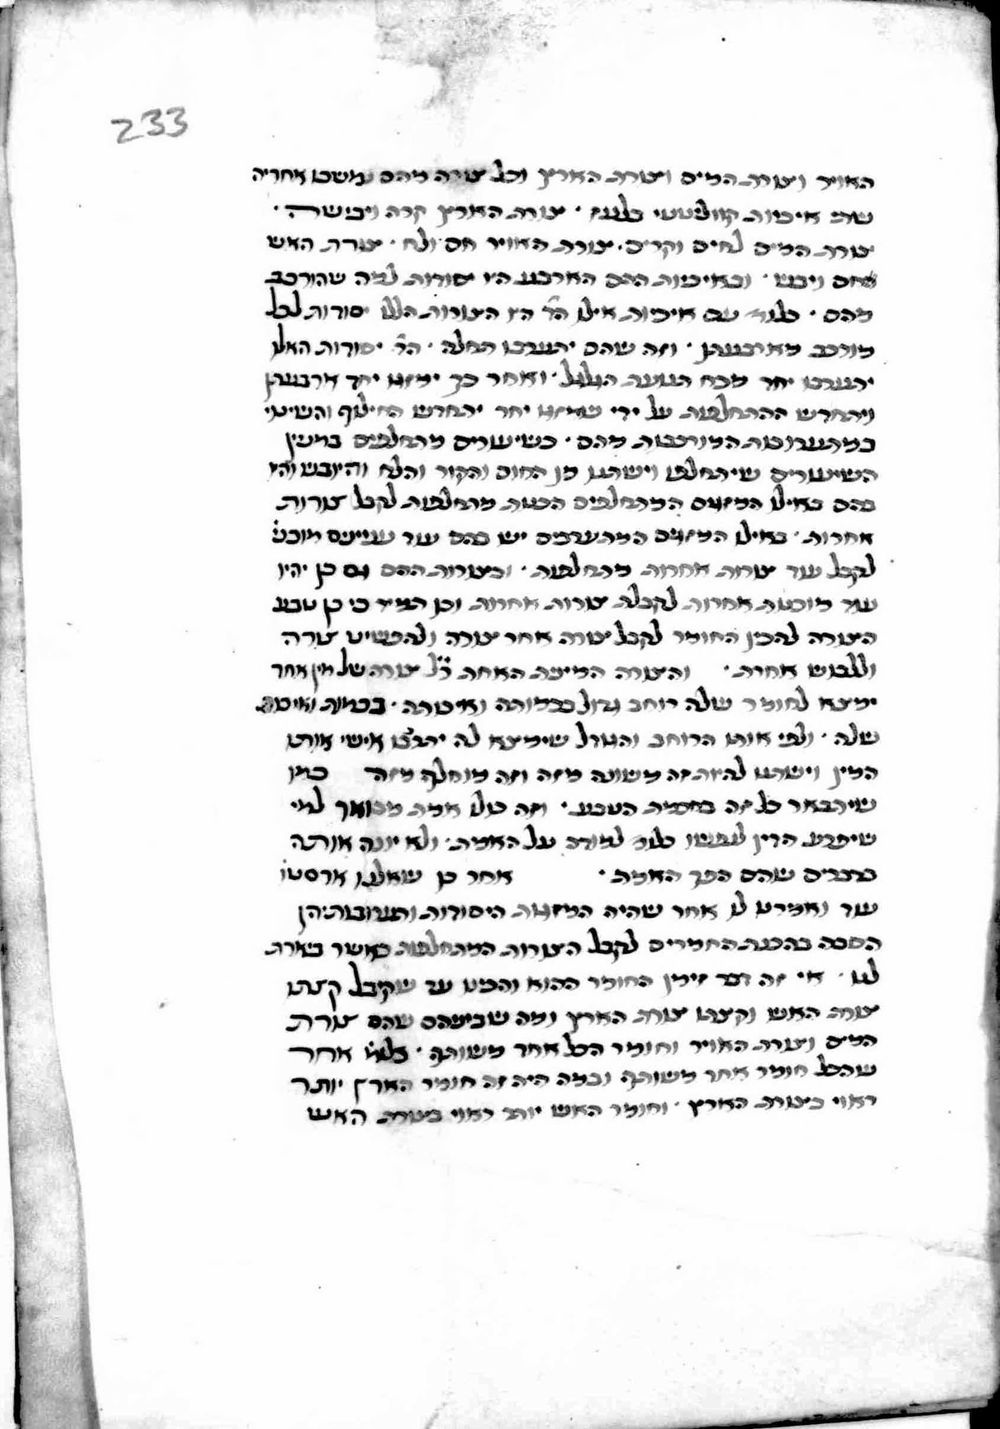 233
האויר וצורת המים וצורת הארץ וכל צורה מהם נמשכו אחריה
שתי איכיות קוליטטי בלעז · צורת הארץ קרה ויבישה ·
צורת המים לחים וקרים · צורת האויר חם ולח · צורת האש
חם ויבש · ובאיכיות ההם הארבע היו יסודות למה שהורכב
מהם · כלומר עם איכיות אילו הד' היו הצורות הללו יסודות לכל
מורכב מארבעתן · וזה שהם יתערבו תחלה · הד' יסודות האלו
יתערבו יחד מכח תנועת הגלגל · ואחר כך ימזגו יחד ארבעתן
ויתחדש ההתחלפות על ידי שימזגו יחד יתחדש החילוף והשינוי
במתערובות המורכבות מהם · כשיעורים מתחלפים במעין
השיעורים שיתחלפו וישתנו מן החום והקור והלח והיובש והיו
בהם באילו המזגים המתחלפים הכנות מתחלפות לקבל צורות
אחרות · באילו המזגים המתערבים יש בהם עוד עניינים מוכנים
לקבל עוד צורות אחרות מתחלפות · ובצורות ההם גם כן יהיו
עוד מוכנות אחרות לקבלת צורות אחרות וכן תמיד כי כן טבע
הצורה להכין החומר לקבל צורה אחר צורה ולהפשיט צורה
וללבוש אחרת · והצורה המינית האחת ר"ל צורה של מין אחד
ימצא לחומר שלה רוחב גדול בכמותה ואיכותה · בכמות ואיכות
שלה · ולפי אותו הרוחב והגודל שימצא לה יתרבו אישי אותו
המין וישתנו להיות זה משונה מזה וזה מוחלף מזה כמו
שיתבאר כל זה בחכמת הטבע · וזה כולו אמת מבואר למי
שיתבע הדין לנפשו כלומר למודה על האמת · ולא יונה אותה
בדברים שהם הפך האמת · אחר כן שאלנו ארסטו
עוד ואמרנו לו אחר שהיה המזגות היסודות ותערובתן הן
הסבה בהכנת החמרים לקבל הצורות המתחלפות כאשר בארת
לנו · אי זה דבר זימן החומר ההוא והכינו עד שקיבל קצתו
צורת האש וקצתו צורת הארץ ומה שביניהם שהם צורת
המים וצורת האויר וחומר הכל אחד משותף · כלומר אחר
שהכל חומר אחד משותף ובמה היה זה חומר הארץ יותר
ראוי בצורת הארץ · וחומר האש יותר ראוי בצורת האש